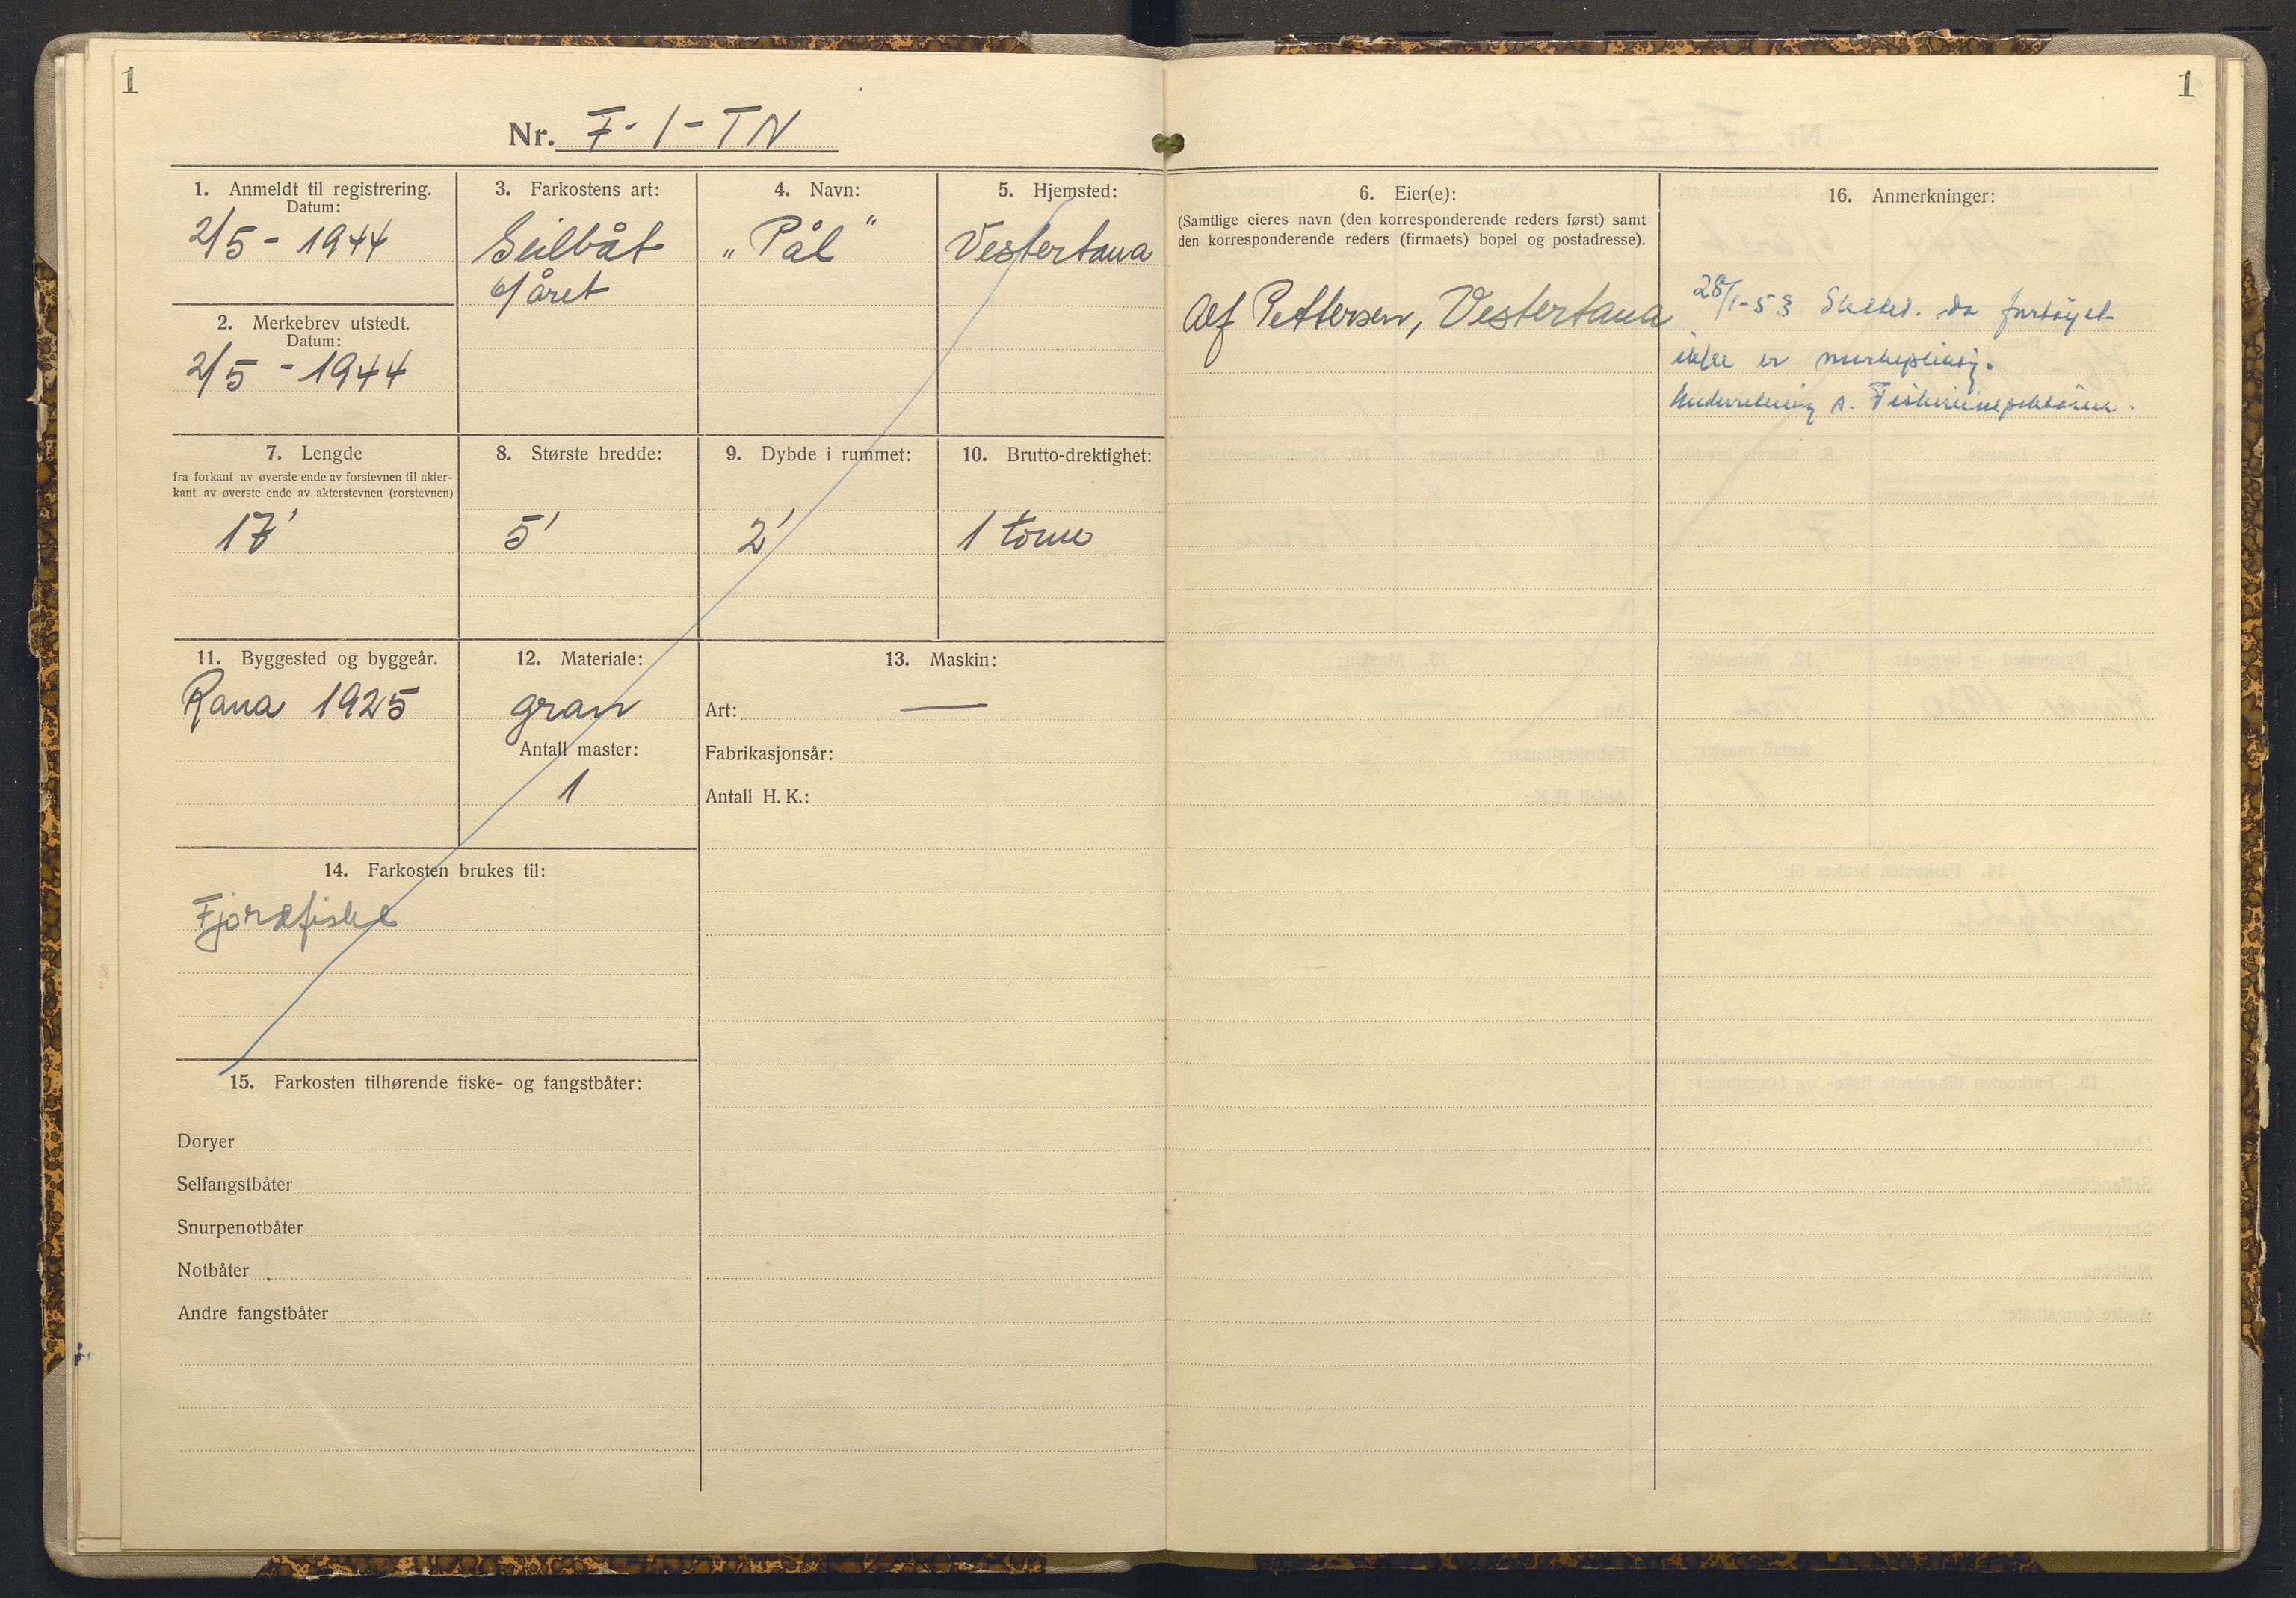 1
Nr. F-1-TN
1. Anmeldt til registrering.
Datum:
2/5 - 1944
2. Merkebrev utstedt.
Datum:
2/5 - 1944
3. Farkostens art:
Seilbåt
6/året
4. Navn:
„Pål"
5. Hjemsted:
Vestertana
7. Lengde
fra forkant av øverste ende av forstevnen til akter-
kant av øverste ende av akterstevnen (rorstevnen)
17'
8. Største bredde:
5'
9. Dybde i rummet:
2'
10. Brutto-drektighet:
1 tonn
11. Byggested og byggeår.
Rana 1925
12. Materiale:
gran
Antall master:
1
13. Maskin:
Art: —
Fabrikasjonsår:
Antall H. K.:
14. Farkosten brukes til:
Fjordfiske
15. Farkosten tilhørende fiske- og fangstbåter:
Doryer
Selfangstbåter
Snurpenotbåter
Notbåter
Andre fangstbåter
1
6. Eier(e):
(Samtlige eieres navn (den korresponderende reders først) samt
den korresponderende reders (firmaets) bopel og postadresse).
Alf Pettersen, Vestertana
16. Anmerkninger:
28/1-53 Slettet. da fartøyet
ikke er merkepliktig.
Fiskeriinspektøren.